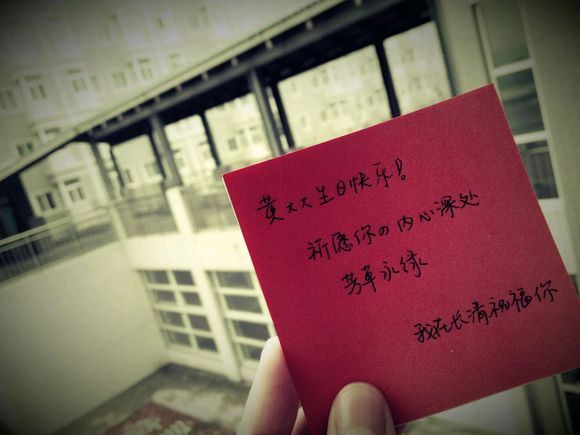 黄大大生日快乐！
祈愿你の内心深处
芳草永绿
我在长清祝福你